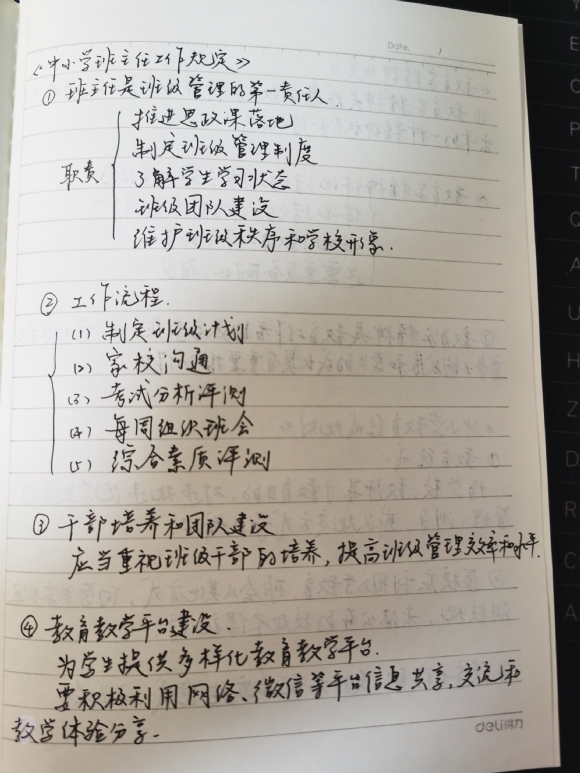 Date. /
《中小学班主任工作规定》
① 班主任是班级管理的第一责任人.
职责
推进思政课落地
制定班级管理制度
了解学生学习状态
班级团队建设
维护班级秩序和学校形像.
② 工作流程.
(1) 制定班级计划
(2) 家校沟通
(3) 考试分析评测
(4) 每周组次班会
(5) 综合素质评测
③ 干部培养和团队建设
应当重视班级干部的培养,提高班级管理效率和水平.
④ 教育教学平台建设.
为学生提供多样化教育教学平台.
要积极利用网络、微信等平台信息共享,交流和
教学体验分享.
deli得力